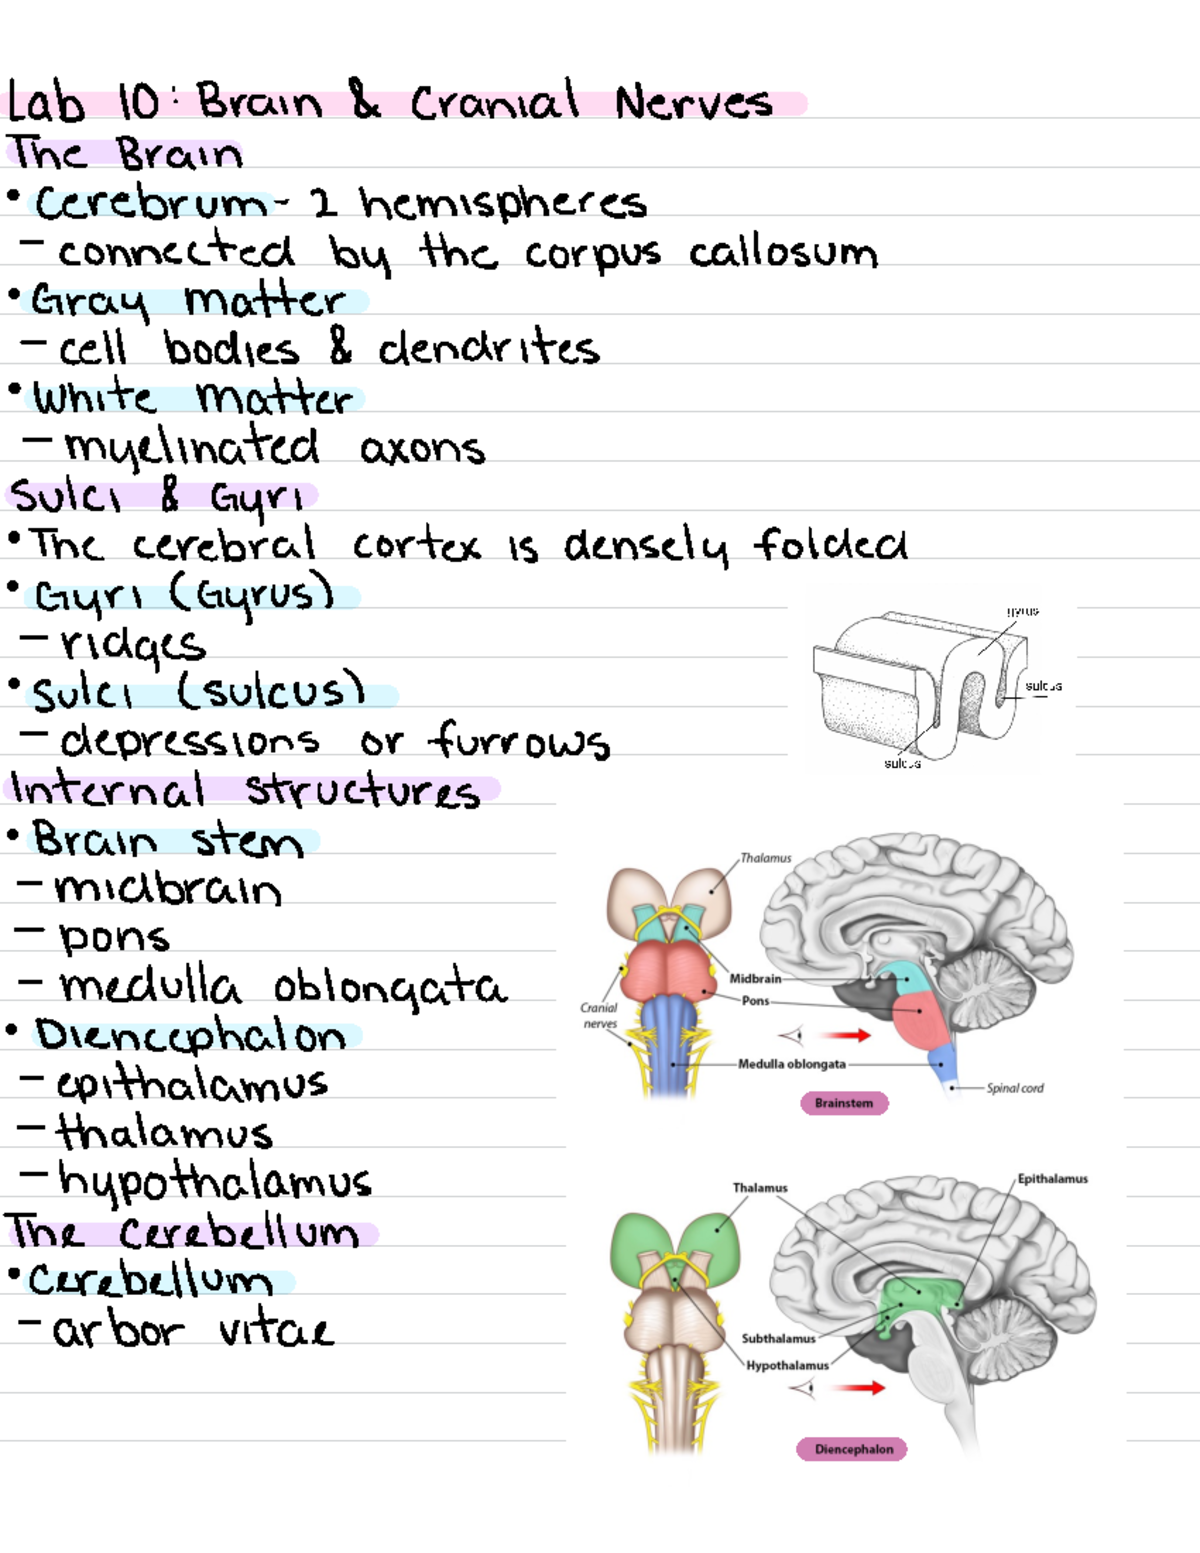 Lab 10: Brain & Cranial Nerves
The Brain
• Cerebrum - 2 hemispheres
- connected by the corpus callosum
• Gray matter
- cell bodies & dendrites
• White matter
- myelinated axons
Sulci & Gyri
• The cerebral cortex is densely folded
• Gyri (Gyrus)
- ridges
• Sulci (sulcus)
- depressions or furrows
gyrus
sulcus
sulcus
Internal structures
• Brain stem
- midbrain
- pons
- medulla oblongata
• Diencephalon
- epithalamus
- thalamus
- hypothalamus
The Cerebellum
• Cerebellum
- arbor vitae
Thalamus
Midbrain
Pons
Cranial
nerves
Medulla oblongata
Spinal cord
Brainstem
Thalamus
Epithalamus
Subthalamus
Hypothalamus
Diencephalon